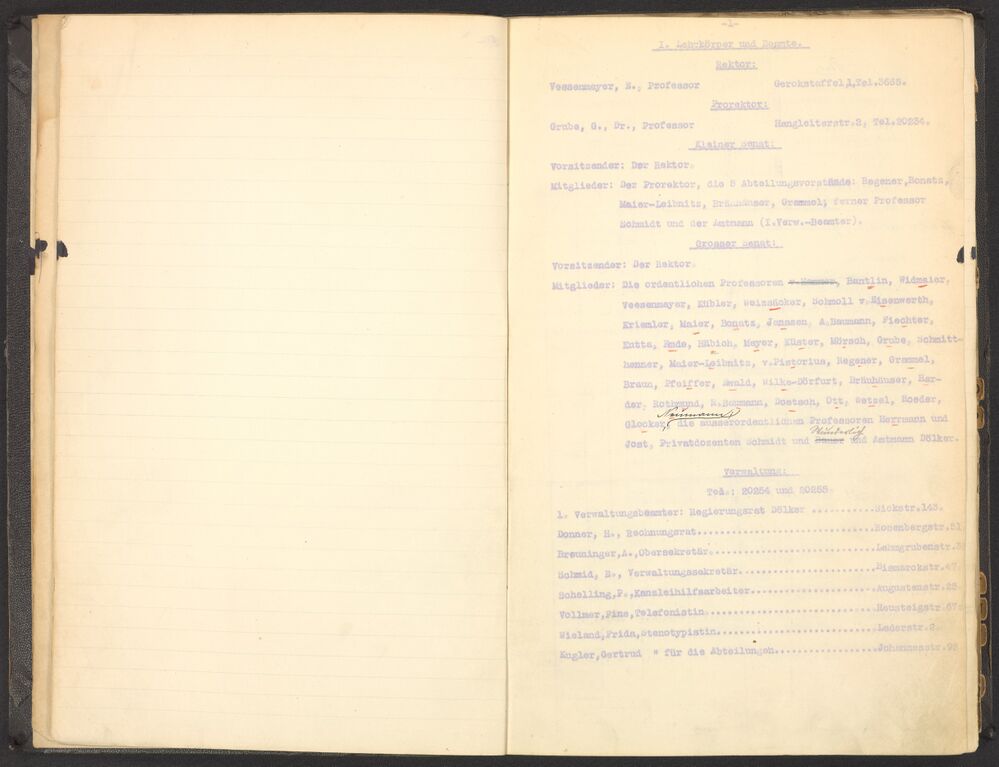 -1-
I. Lehrkörper und Beamte.
Rektor:
Veesenmayer, E., Professor Gerokstaffel 1, Tel.3665.
Prorektor:
Grube, G., Dr., Professor Hengleiterstr.2, Tel.20234.
Kleiner Senat:
Vorsitzender: Der Rektor.
Mitglieder: Der Prorektor, die 5 Abteilungsvorstände: Regener, Bonatz,
Maier-Leibnitz, Bräuhäuser, Grammel, ferner Professor
Schmidt und der Amtmann (I.Verw.-Beamter).
Grosser Senat:
Vorsitzender: Der Rektor.
Mitglieder: Die ordentlichen Professoren Bantlin, Widmaier,
Veesenmayer, Kübler, Weizsäcker, Schmoll v.Eisenwerth,
Kriemler, Maier, Bonatz, Janssen, A.Baumann, Fiechter,
Kutta, Rade, Häbich, Meyer, Küster, Mörsch, Grube, Schmitt-
henner, Maier-Leibnitz, v.Pistorius, Regener, Grammel,
Braun, Pfeiffer, Ewald, Wilke-Dörfurt, Bräuhäuser, Har-
der, Rothmund, R.Baumann, Doetsch, Ott, Wetzel, Roeder,
Neumann
Glocker, die ausserordentlichen Professoren Herrmann und
Wunderlich
Jost, Privatdozenten Schmidt und Bauer und Amtmann Dölker.
Verwaltung:
Tel.: 20254 und 20255.
1. Verwaltungsbeamter: Regierungsrat Dölker ..........Sickstr.143.
Donner, H., Rechnungsrat...........................Rosenbergstr.51
Breuninger,A.,Obersekretär.........................Lehmgrubenstr.
Schmid, E., Verwaltungssekretär....................Bismarckstr.47.
Schelling,P.,Kanzleihilfsarbeiter..................Augustenstr.25
Vollmer,Fine,Telefonistin..........................Heusteigstr.67
Wieland,Frida,Stenotypistin........................Lederstr.2.
Kugler,Gertrud " für die Abteilungen................Johannesstr.95